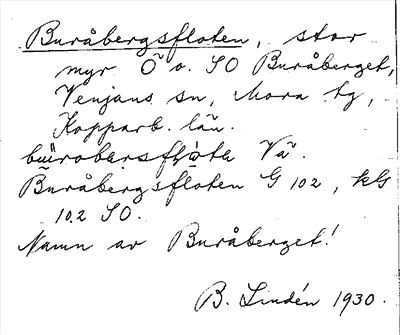 Buråbergsfloten, stor
myr Ö o. SO Buråberget,
Venjans sn, Mora tg,
Kopparb. län.
Vä.
Buråbergsfloten G 102, kls
102 SO.
Namn av Buråberget!
B. Lindén 1930.